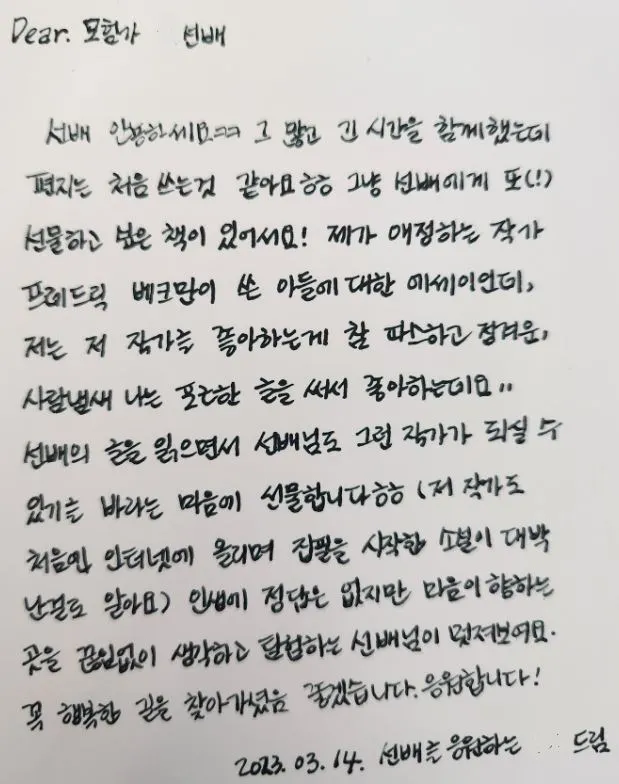 Dear. 모험가 선배
선배 안녕하세요ㅋㅋ 그 많고 긴 시간을 함께했는데
편지는 처음 쓰는것 같아요ㅎㅎ 그냥 선배에게 또(!)
선물하고 싶은 책이 있어서요! 제가 애정하는 작가
프레드릭 베크만이 쓴 아들에 대한 에세이인데,
저는 저 작가를 좋아하는게 참 따스하고 정겨운,
사람냄새 나는 포근한 글을 써서 좋아하는데요..
선배의 글을 읽으면서 선배님도 그런 작가가 되실 수
있기를 바라는 마음에 선물합니다ㅎㅎ (저 작가도
처음엔 인터넷에 올리며 집필을 시작한 소설이 대박
난걸로 알아요) 인생에 정답은 없지만 마음이 향하는
곳을 끊임없이 생각하고 탐험하는 선배님이 멋져보여요.
꼭 행복한 길을 찾아가셨음 좋겠습니다. 응원합니다!
2023. 03. 14. 선배를 응원하는 드림